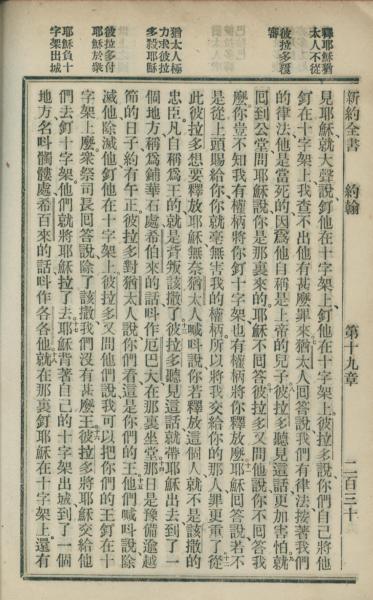 釋耶穌猶
太人不從
彼拉多覆
審
猶太人極
力求彼拉
多殺耶穌
彼拉多付
耶穌於衆
耶穌負十
字架出城
新約全書 約翰 第十九章 二百三十
見耶穌就大聲說釘他在十字架上釘他在十字架上彼拉多說你們自己將他
釘在十字架上我查不出他有甚麽罪來猶太人囘答說我們有律法按著我們
的律法他是當死的因爲他自稱是上帝的兒子彼拉多聽見這話更加害怕就
囘到公堂問耶穌說你是那裏來的耶穌不囘答彼拉多又問他說你不囘答我
麽你豈不知我有權柄將你釘十字架也有權柄將你釋放麽耶穌囘答說若不
是從上頭賜給你你就毫無害我的權柄所以將我交給你的那人罪更重了從
此彼拉多想要釋放耶穌無奈猶太人喊呌說你若釋放這個人就不是該撒的
忠臣凡自稱爲王的就是背叛該撒了彼拉多聽見這話就帶耶穌出去到了一
個地方稱爲鋪華石處希伯來的話呌作厄巴大在那裏坐堂那日是豫備逾越
節的日子約有午正彼拉多對猶太人說你們看這是你們的王他們喊呌說除
滅他除滅他釘他在十字架上彼拉多又問他們說我可以把你們的王釘在十
字架上麽衆祭司長囘答說除了該撒我們沒有甚麽王彼拉多將耶穌交給他
們去釘十字架他們就將耶穌拉了去耶穌背著自己的十字架出城到了一個
地方名呌髑髏處希百來的話呌作各各他就在那裏釘耶穌在十字架上還有